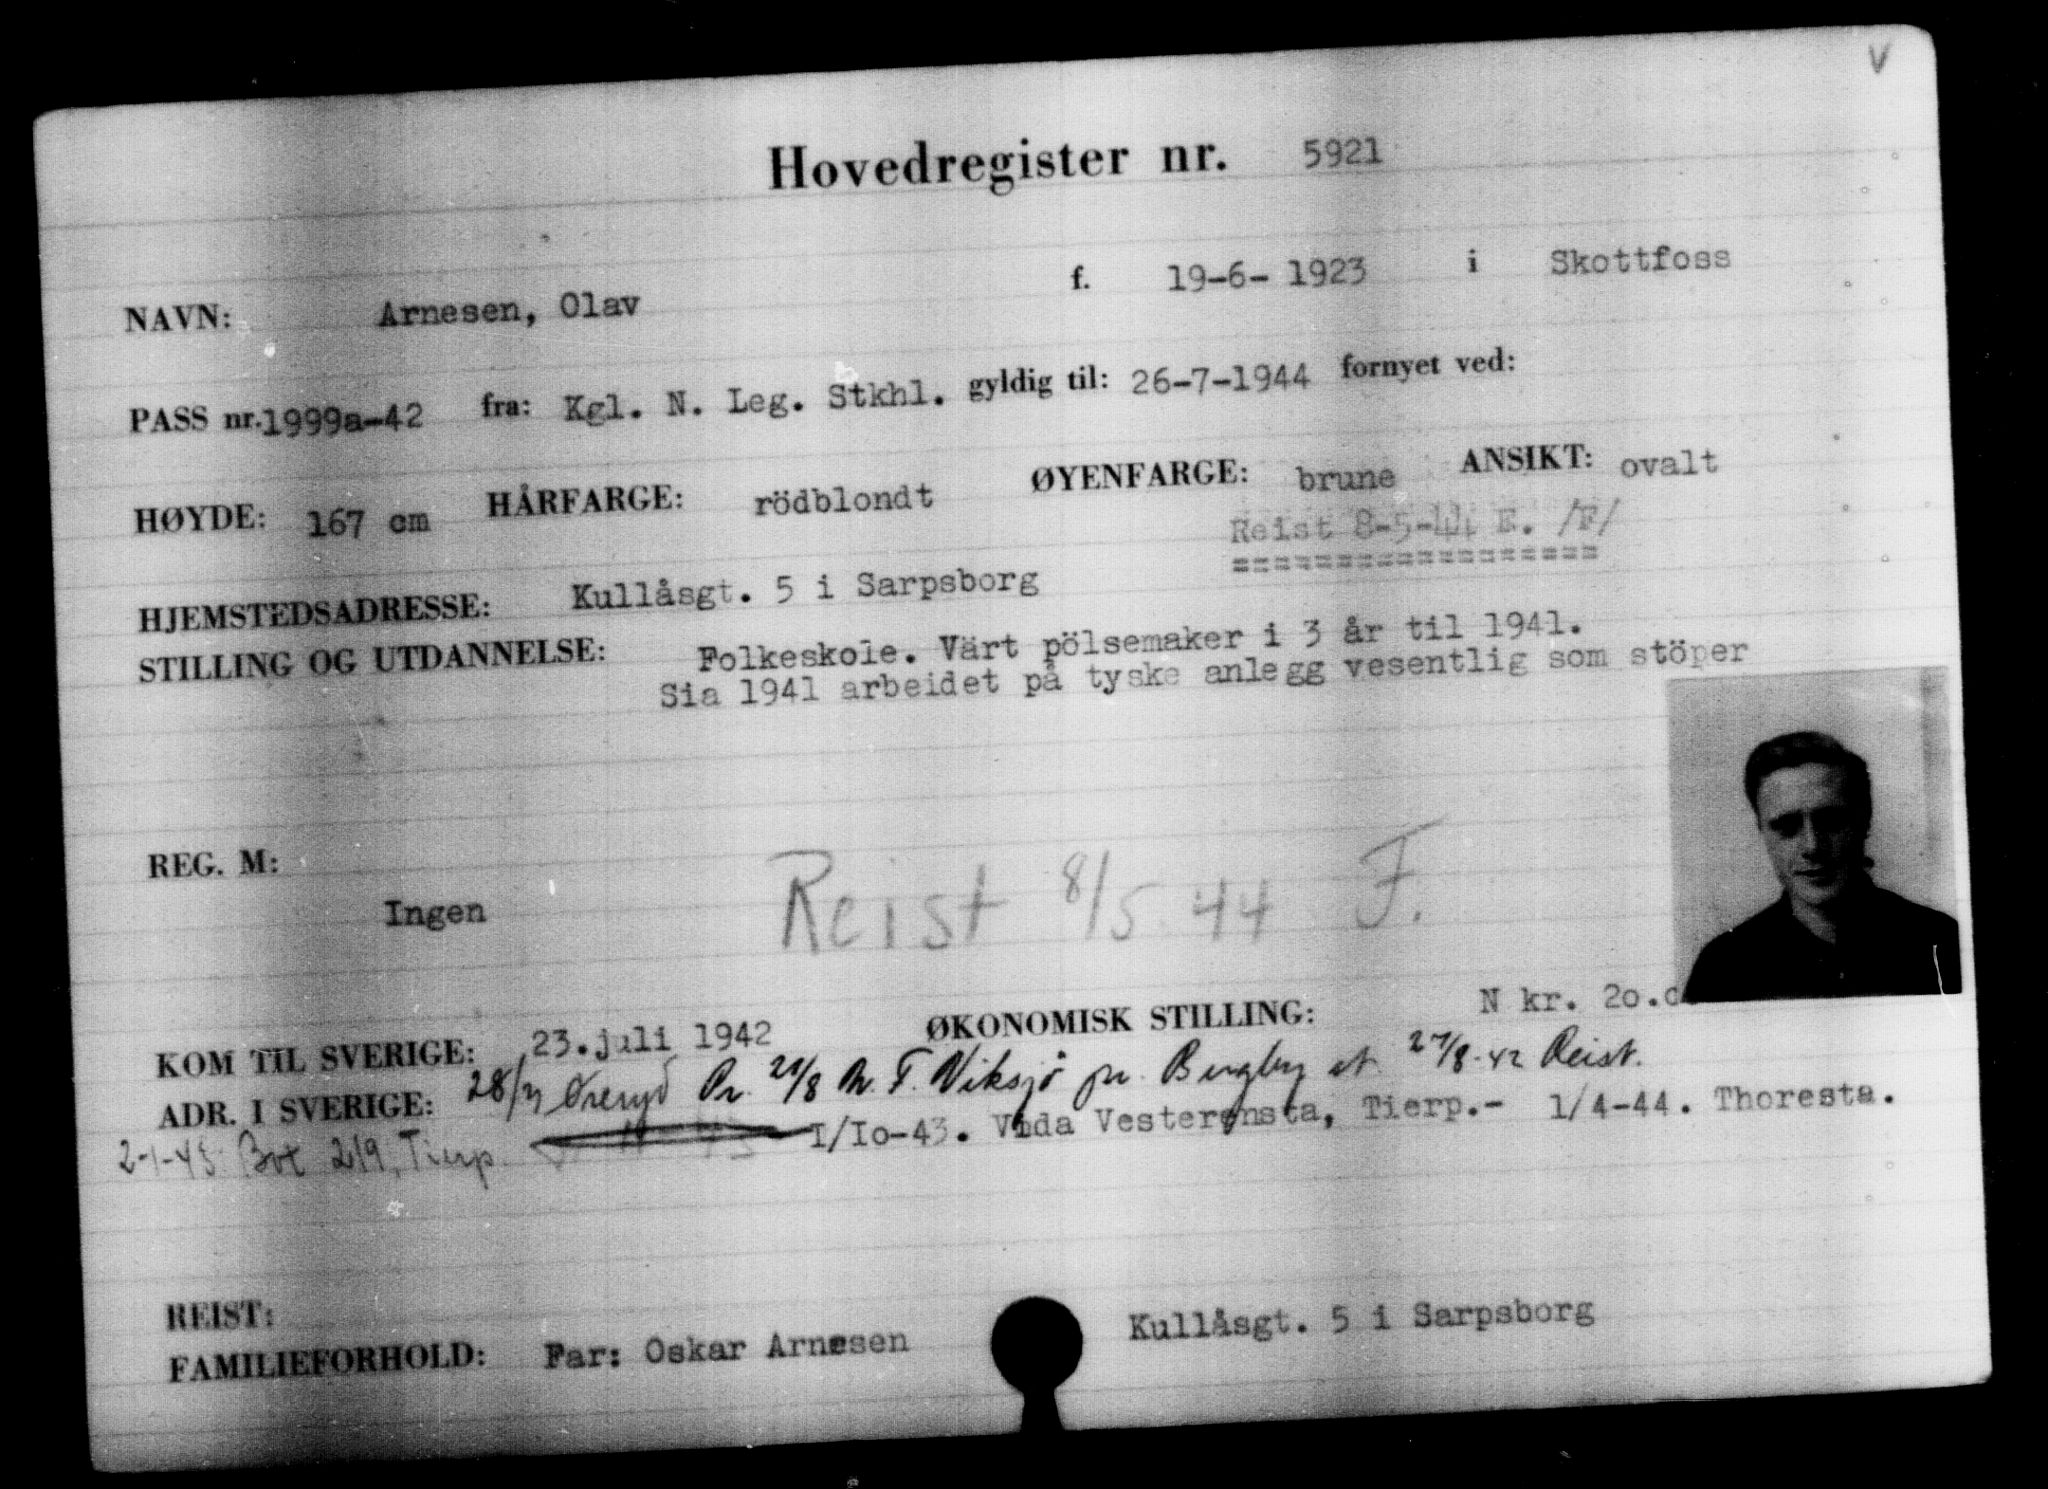 V
Hovedregister nr. 5921
NAVN: Arnesen, Olav f. 19-6- 1923 i Skottfoss
PASS nr. 1999a-42 fra: Kgl. N. Leg. Stkhl. gyldig til: 26-7-1944 fornyet ved:
HØYDE: 167 cm HÅRFARGE: rödblondt ØYENFARGE: brune ANSIKT: ovalt
Reist 8-5-44 E. /F/
==================
HJEMSTEDSADRESSE: Kullåsgt. 5 i Sarpsborg
STILLING OG UTDANNELSE: Folkeskole. Värt pölsemaker i 3 år til 1941.
Sia 1941 arbeidet på tyske anlegg vesentlig som stöper
REG. M:
Ingen
Reist 8/5 44 F.
KOM TIL SVERIGE: 23.juli 1942 ØKONOMISK STILLING: N kr. 2o.
ADR. I SVERIGE: 28/7 Øreryd Pr. 28/8 Viksjö pr. 27/8-42 Reist.
2-1-45: Box 219, Tierp. I/Io-43. Vada Vesterensta, Tierp.- 1/4-44. Thoresta.
REIST:
FAMILIEFORHOLD: Far: Oskar Arnesen Kullåsgt. 5 i Sarpsborg